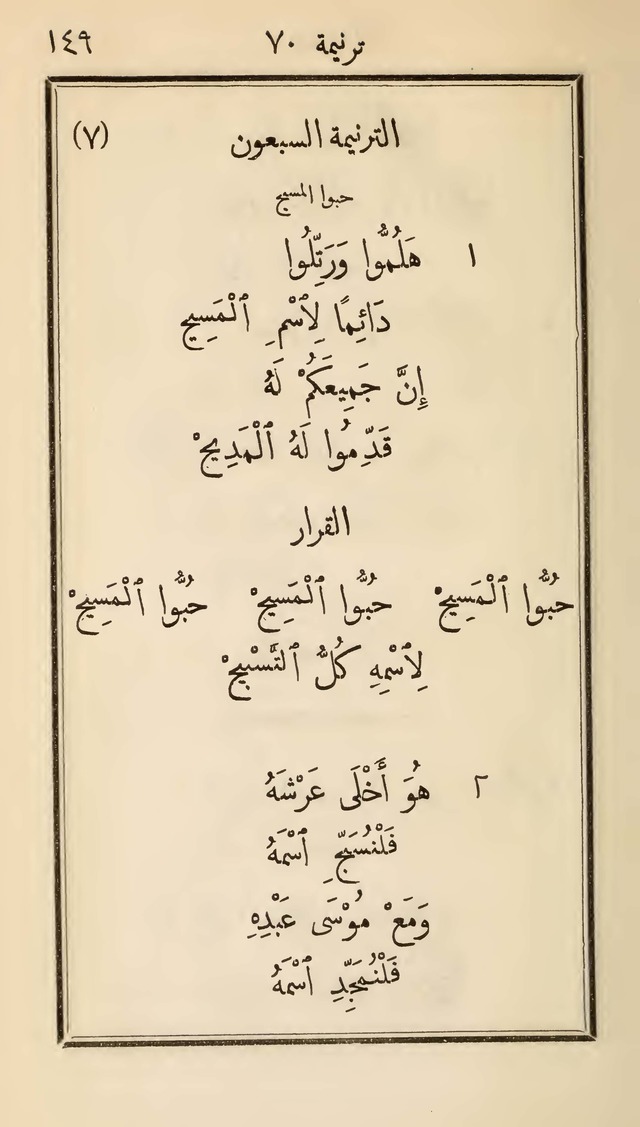 ترنيمة ٧٠ ١٤٩
الترنيمة السبعون (٧)
حبوا المسيح
١ هَلُمُّوا وَرَتِّلُوا
دَائِمًا لِٱسْمِ ٱلْمَسِيحِ
إِنَّ جَمِيعَكُمْ لَهُ
قَدِّمُوا لَهُ ٱلْمَدِيحْ
القرار
حُبُّوا ٱلْمَسِيحْ حُبُّوا ٱلْمَسِيحْ حُبُّوا ٱلْمَسِيحْ
لِٱسْمِهِ كُلُّ ٱلتَّسْبِيحْ
٢ هُوَ أَخْلَى عَرْشَهُ
فَلْنُسَبِّحِ ٱسْمَهُ
وَمَعْ مُوْسَى عَبْدِهِ
فَلْنُمَجِّدِ ٱسْمَهُ